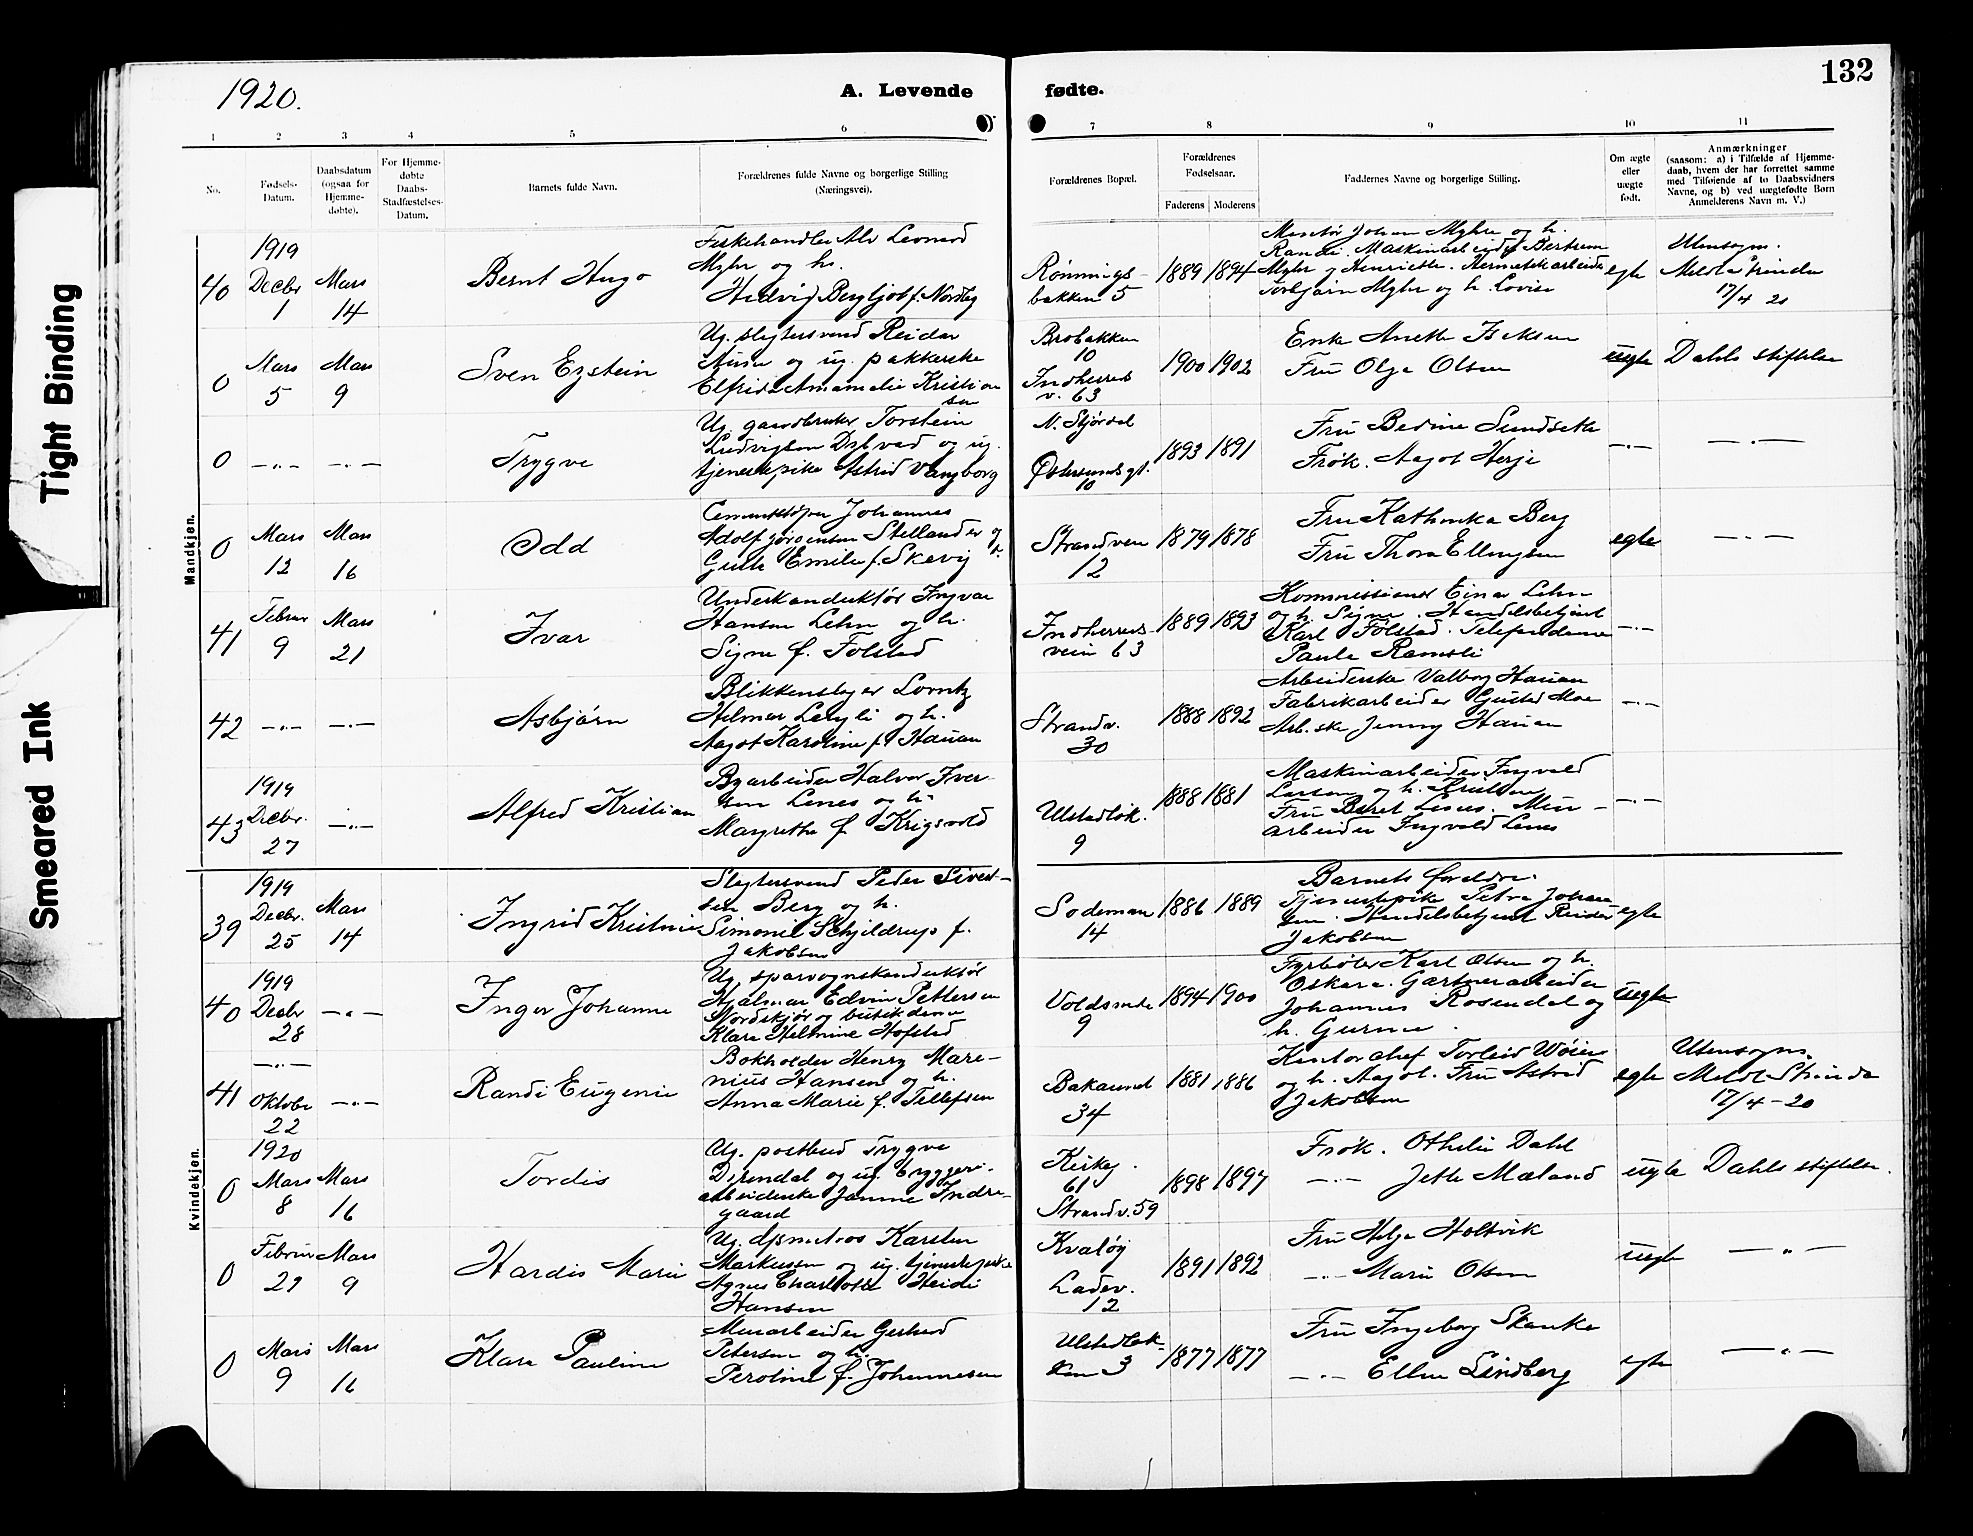 Tight Binding
Smeared Ink
1920.
A. Levende fødte.
132
1 2 3 4 5 6 7 8 9 10 11
No.
Fødsels-
Datum.
Daabsdatum
(ogsaa for
Hjemme-
døbte).
For Hjemme-
døbte
Daabs-
Stadfæstelses-
Datum.
Barnets fulde Navn.
Forældrenes fulde Navne og borgerlige Stilling
(Næringsvei).
Forældrenes Bopæl.
Forældrenes
Fødselsaar.
Faderens
Moderens
Faddernes Navne og borgerlige Stilling.
Om ægte
eller
uægte
født.
Anmærkninger
(saasom: a) i Tilfælde af Hjemme-
daab, hvem der har forrettet samme
med Tilføiende af to Daabsvidners
Navne, og b) ved uægtefødte Børn
Anmelderens Navn m. V.)
Mandkjøn.
40
1919
Decbr
1
Mars
14
Bernt Hugo
Fiskehandler Alv Leonard
Myhr og h.
Hedvig Bergljot f. Nordby
Rönnings-
bakken 5
1889 1894
Johan Myhre og h.
Randi. Maskinarbeider Bertram
Myhr og Henriette. Hermetikarbeider
Torbjörn Myhr og h. Lovise
egte
Utensogns.
Meldt Strinda
17/4 20
0
Mars
5
Mars
9
Sven Eystein
Ug. slagtersvend Reidar
Aune og ug. pakkerske
Elfrida Amamalie Kristian
sen
Brobakken
10
Indherreds
v. 63
1900 1902
Enke Anette Isaksen
Fru Olga Olsen
uegte
Dahls stiftelse
0
—"—
—"—
Trygve
Ug. gaardbruker Torstein
Ludvigsen Dybvad og ug.
tjenestepike Astrid Vangberg
N. Stjørdal
Østersundsgt.
10
1893 1891
Fru Berine Sundseth
Frøk. Aagot Herje
—"—
—"—
0
Mars
12
Mars
16
Odd
Cementstøper Johannes
Adolf Jørgensen Stellander og h.
Gusta Emilie f. Skevig
Strandveien
12
1879 1878
Fru Kathinka Berg
Fru Thora Ellingsen
egte
—"—
41
Februar
9
Mars
21
Ivar
Underkonduktör Ingvar
Hansen Lehn og h.
Signe f. Folstad
Indherreds-
veien 63
1889 1893
Kommissioner Einar Lehn
og h. Signe. Handelsbetjent
Karl Folstad. Telefondame
Paula Ramsli
—"—
42
—"—
—"—
Asbjörn
Blikkenslager Lorntz
Hilmar Lengli og h.
Aagot Karoline f. Hauan
Strandv.
30
1888 1892
Arbeiderske Valborg Hauan
Fabrikarbeider Gustad Moe
Arb.ske Jenny Hauan
—"—
43
1919
Decbr.
27
—"—
Alfred Kristian
Byarbeider Halvor Iver-
sen Lenes og h.
Margrethe f. Krigsvold
Ulstadløk.
9
1888 1881
Maskinarbeider Ingvald
Larsen og h. Kristine
Fru Beret Lenes. Mur-
arbeider Ingvald Lenes
—"—
Kvindekjøn.
39
1919
Decbr.
25
Mars
14
Ingrid Kristine
Slagtersvend Peder Sivert-
sen Berg og h.
Simonie Schjeldrup f.
Jakobsen
Sodeman
14
1886 1889
Barnets foreldre.
Tjenestepike Petra Johan
sen. Handelsbetjent Reidar
Jakobsen
egte
40
1919
Decbr
28
—"—
Inger Johanne
Ug. sporvognskonduktör
Hjalmar Edvin Pettersen
Nordskjör og butikdame
Klara Helmine Hofstad
Voldsminde
9
1894 1900
Fyrbøter Karl Olsen og h.
Oskara. Gartnerarbeider
Johannes Rosendal og
h. Gurine.
uegte
41
—"—
Oktober
22
—"—
Randi Eugenie
Bokholder Henry Mare-
nius Hansen og h.
Anna Marie f. Tellefsen
Bakaunet
34
1881 1886
Kontorchef Torleid Wøien
og h. Aagot. Fru Astrid
Jakobsen
egte
Utensogns.
Meldt Strinda
17/4-20
0
1920
Mars
8
Mars
16
Tordis
Ug. postbud Trygve
Dyrendal og ug. bryggeri-
arbeiderske Jamine Indre-
gaard
Kirkeg.
61
Strandv. 59
1898 1897
Frøk. Othelie Dahl
—"— Jette Mæland
uegte
Dahls stiftelse.
0
Februar
29
Mars
9
Hardis Marie
Ug. Karsten
Markussen og ug. tjenestepike
Agnes Charlotte Heidi
Hansen
Kvaløy
Ladev.
12
1891 1892
Fru Helga Holtvik
—"— Marie Olsen
uegte
—"—
0
Mars
9
Mars
16
Klara Pauline
Murarbeider Gerhard
Petersen og h.
Peroline f. Johannesen
Ulstadløk-
ken 3
1877 1877
Fru Ingeborg Skanke
—"— Ellen Lindberg
egte
—"—